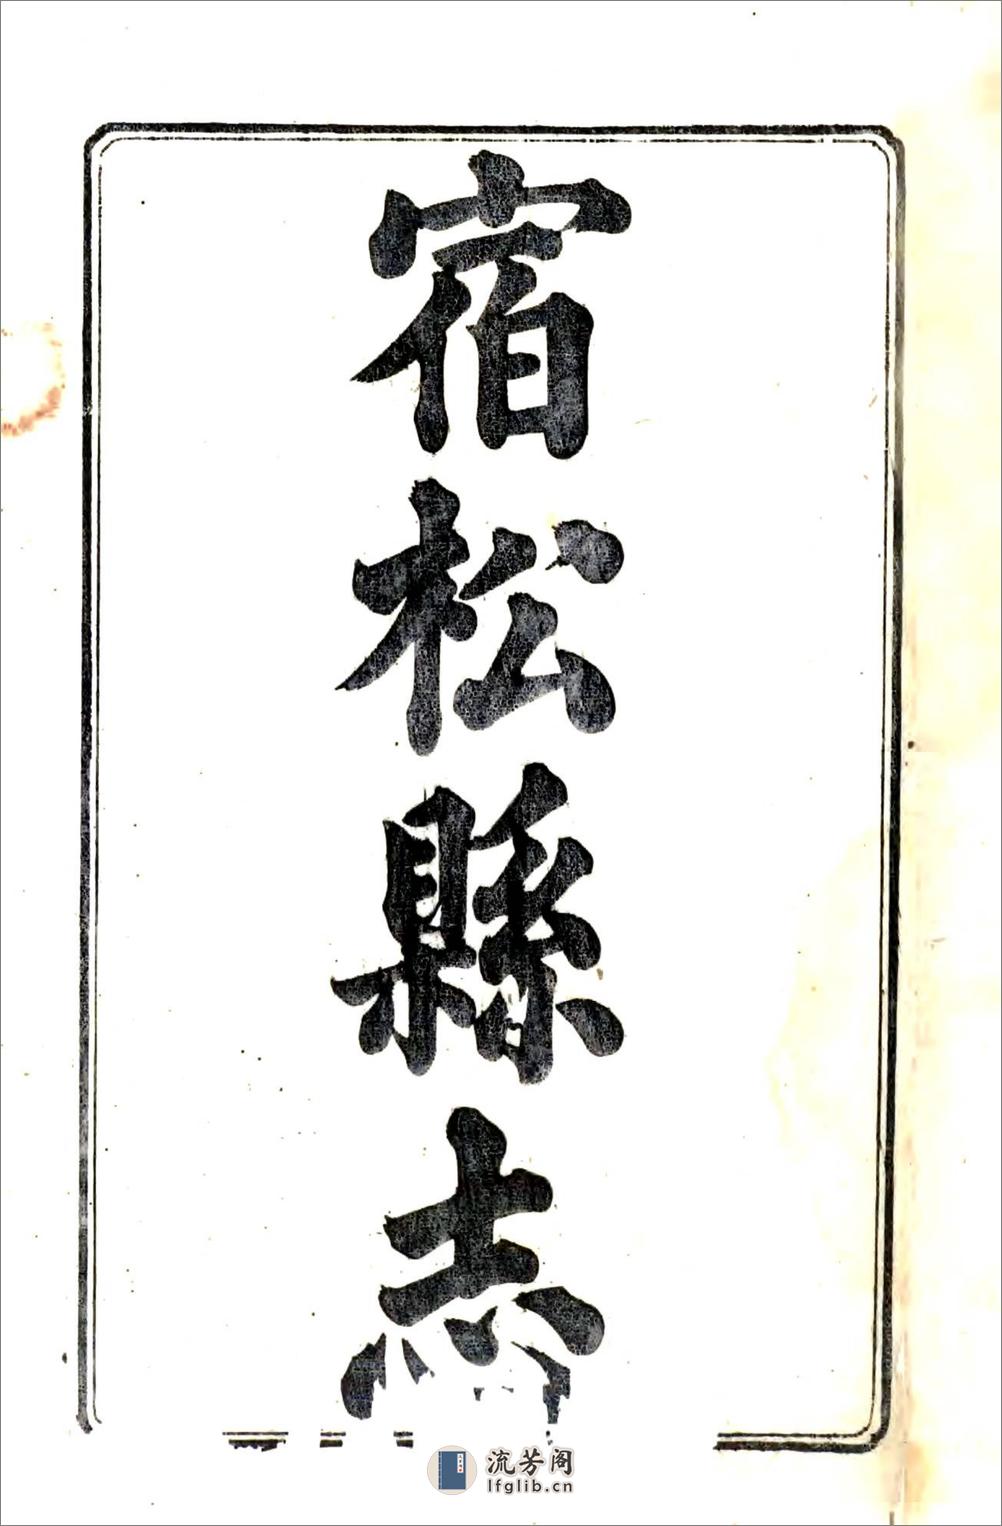 宿松縣志
流芳阁
lfglib.cn